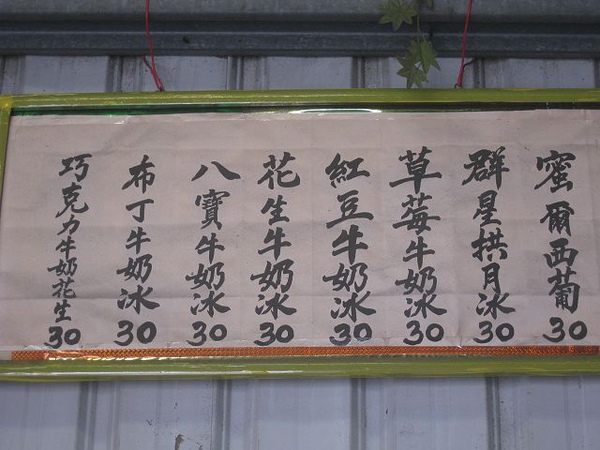 蜜爾西葡30
群星拱月冰30
草莓牛奶冰30
紅豆牛奶冰30
花生牛奶冰30
八寶牛奶冰30
布丁牛奶冰30
巧克力牛奶花生30